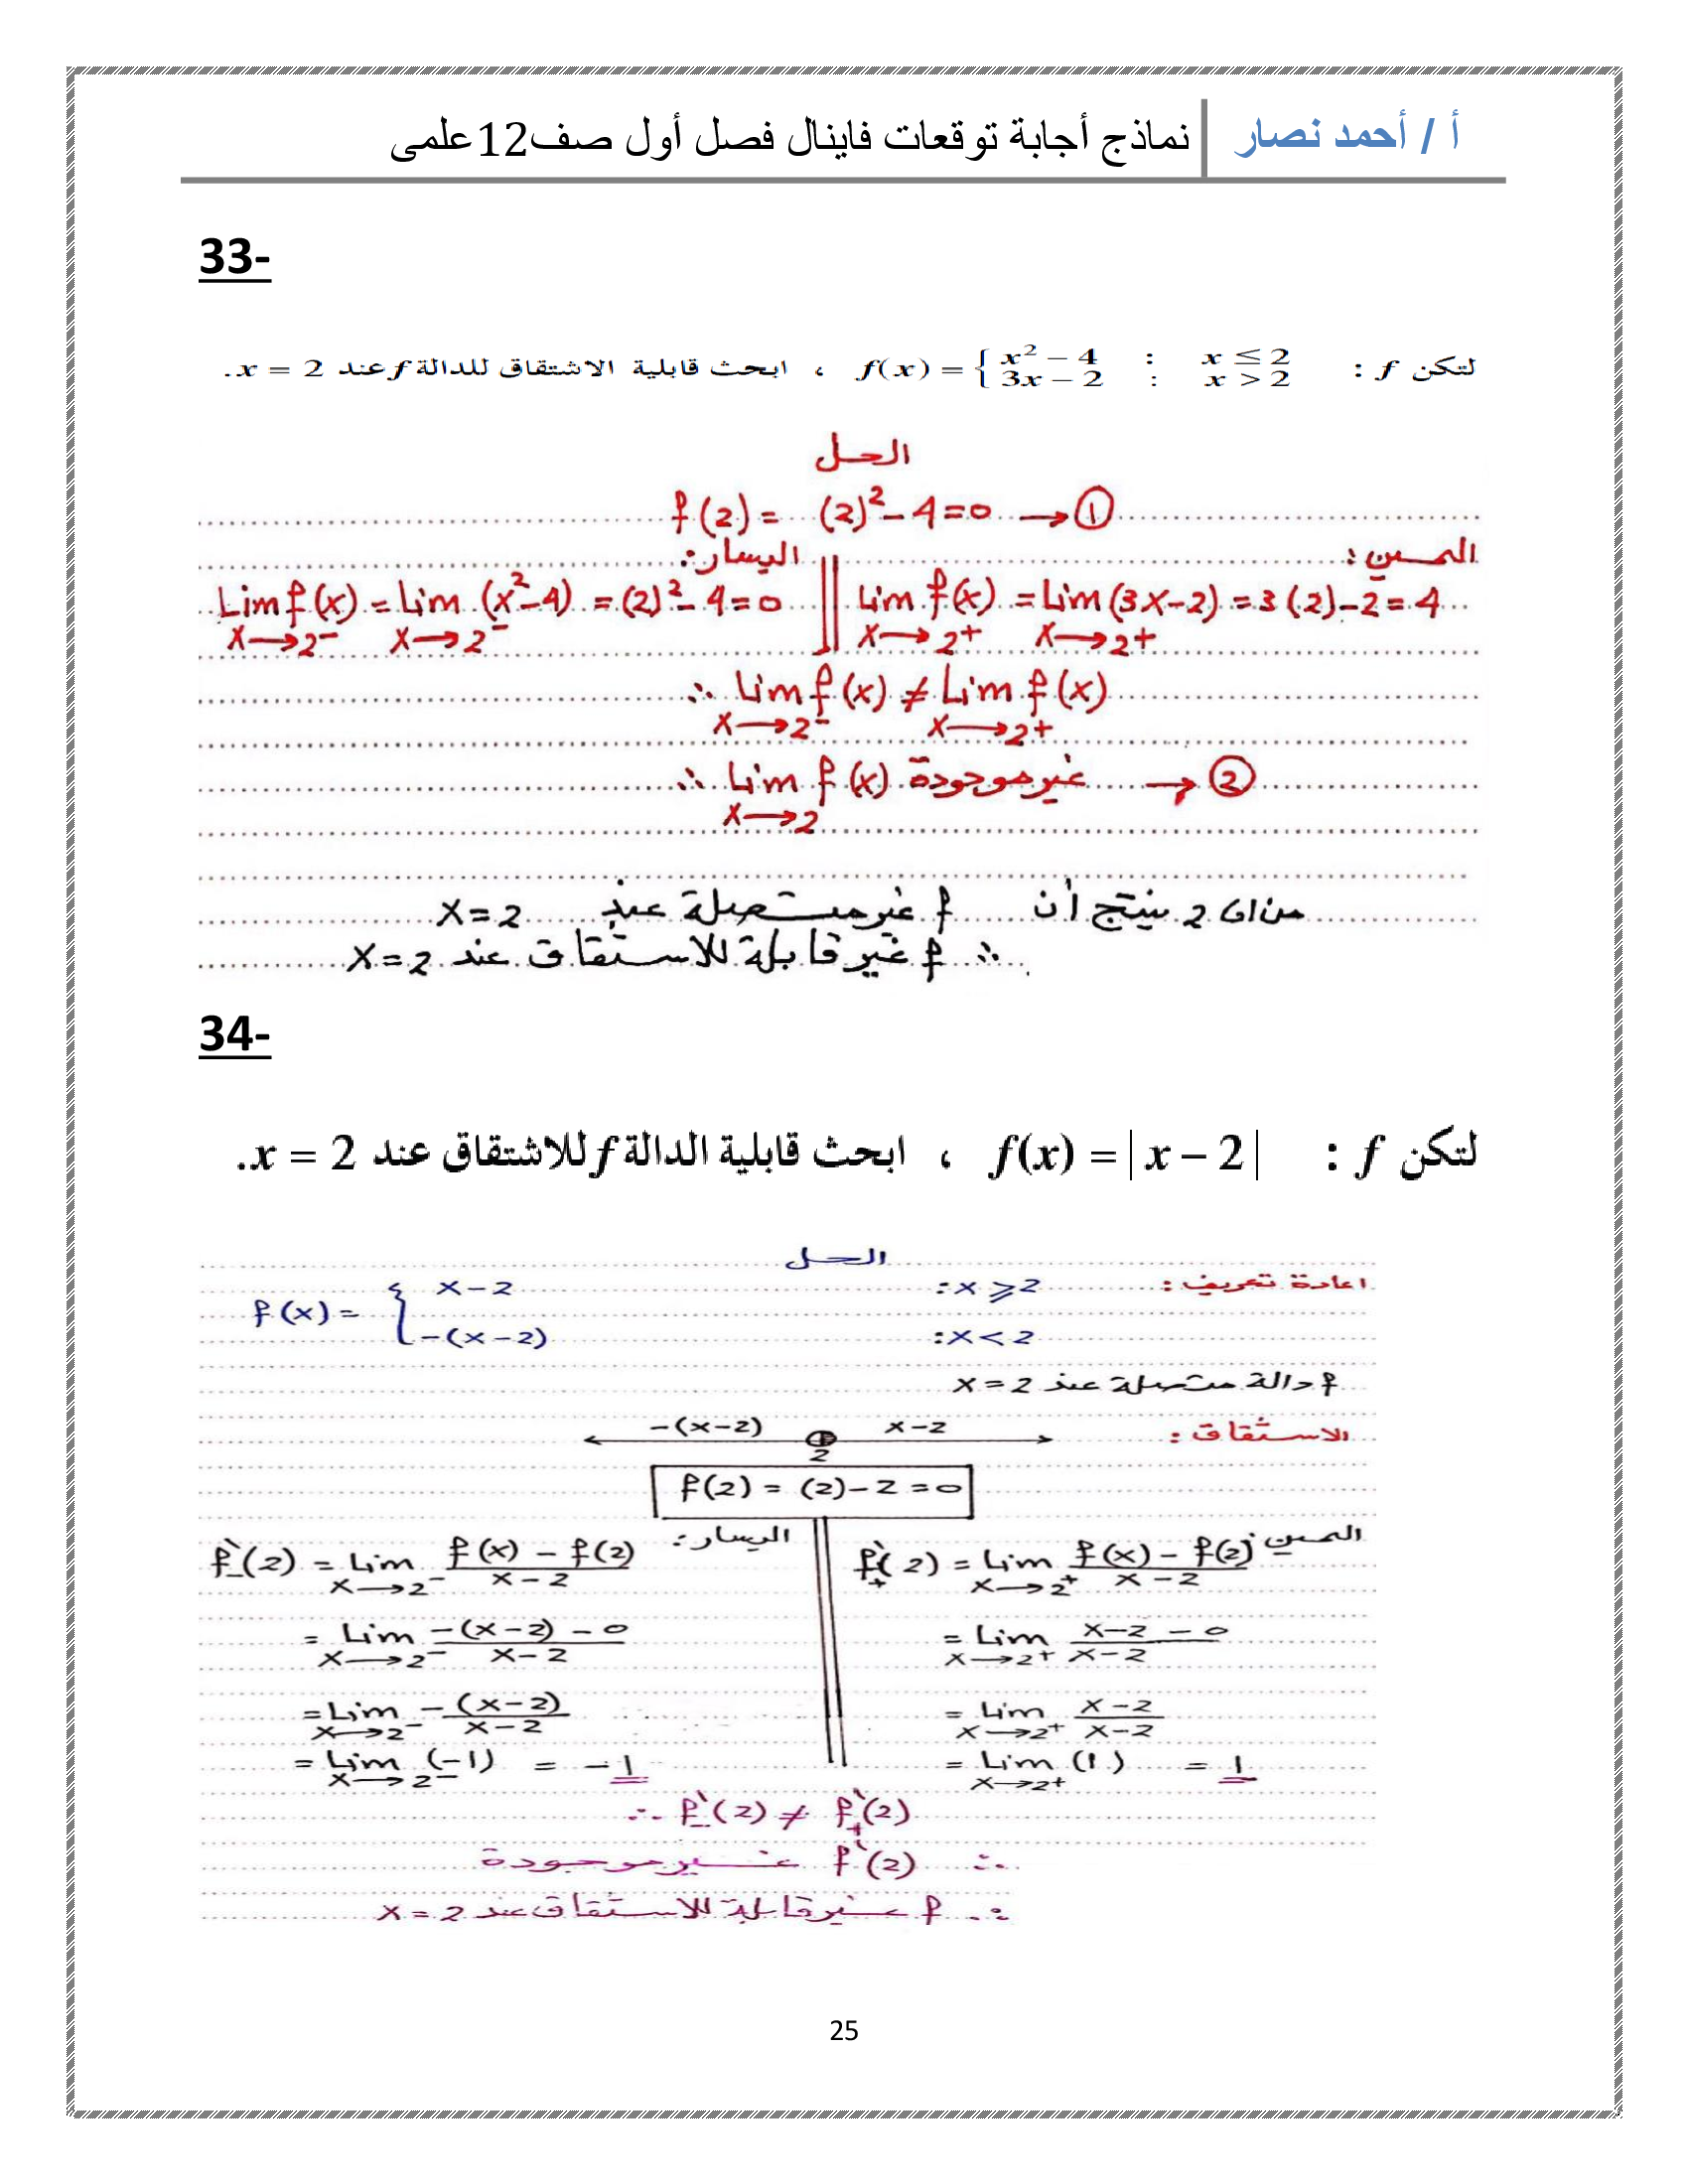 أ / أحمد نصار | نماذج أجابة توقعات فاينال فصل أول صف12علمى
33-
لتكن f : f(x) = { x² − 4 : x ≤ 2 ، ابحث قابلية الاشتقاق للدالة f عند x = 2.
3x − 2 : x > 2
الحل
f(2) = (2)² - 4 = 0 → ①
اليمين :
Lim f(x) = Lim (3x-2) = 3(2)-2 = 4
x→2+ x→2+
اليسار :
Lim f(x) = Lim (x²-4) = (2)² - 4 = 0
x→2- x→2-
∴ Lim f(x) ≠ Lim f(x)
x→2- x→2+
∴ Lim f(x) غير موجودة → ②
x→2
من 1 ، 2 ينتج أن f غير متصلة عند x = 2
∴ f غير قابلة للاشتقاق عند x = 2
34-
لتكن f : f(x) = | x − 2 | ، ابحث قابلية الدالة f للاشتقاق عند x = 2.
الحل
اعادة تعريف :
f(x) = { x-2 : x ⩾ 2
-(x-2) : x < 2
f دالة متصلة عند x = 2
الاشتقاق :
-(x-2) x-2
2
f(2) = (2) - 2 = 0
اليمين
f'+(2) = Lim f(x) - f(2) / x - 2
x→2+
= Lim x-2 - 0 / x-2
x→2+
= Lim x-2 / x-2
x→2+
= Lim (1) = 1
x→2+
اليسار :
f'-(2) = Lim f(x) - f(2) / x - 2
x→2-
= Lim -(x-2) - 0 / x-2
x→2-
= Lim -(x-2) / x-2
x→2-
= Lim (-1) = -1
x→2-
∴ f'-(2) ≠ f'+(2)
∴ f'(2) غير موجودة
∴ f غير قابلة للاشتقاق عند x = 2
25